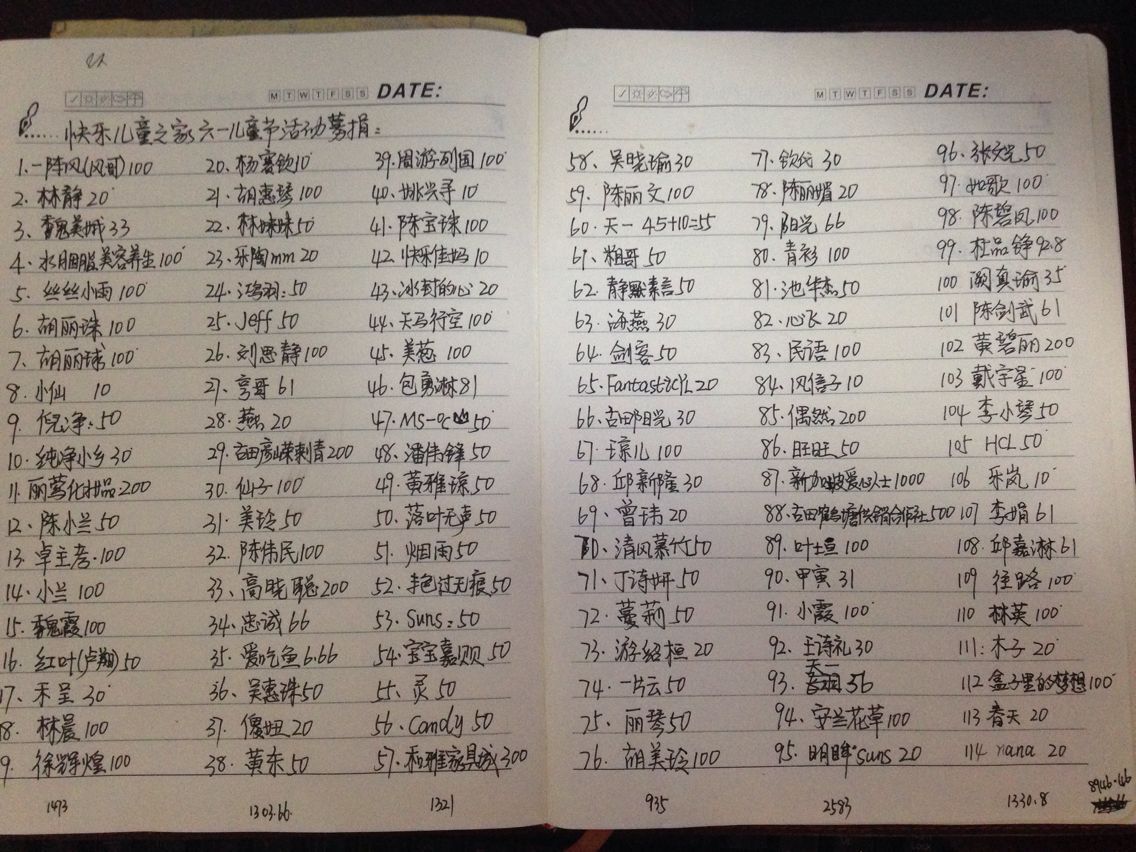 M T W T F S S DATE:
快乐儿童之家六一儿童节活动募捐:
1.一阵风(风哥)100
2. 林静 20
3、魏美城 33
4、水胭脂美容养生 100
5. 丝丝小雨 100
6. 胡丽珠 100
7、胡丽球 100
8. 小仙 10
9. 倪净: 50
10. 纯净小乡 30
11. 丽莺化妆品 200
12. 陈小兰 50
13. 卓主彦·100
14. 小兰 100
15. 魏霞 100
16. 红叶(卢翔) 50
17、禾呈 30
18. 林晨 100
9. 徐辉煌 100
1473
20. 杨赛钦 10
21. 胡惠琴 100
22. 林妹妹 50
23. 乐陶mm 20
24. 鸿羽: 50
25. Jeff 50
26. 刘思静 100
27. 亨哥 61
28. 燕 20
29. 古田彦嵘刺青 200
30. 仙子 100
31. 美玲 50
32. 陈伟民 100
33. 高晓聪 200
34. 忠诚 66
35. 爱吃鱼 6.66
36、吴惠珠 50
37. 傻妞 20
38. 黄东 50
1303.66
39. 周游列国 100
40. 姚兴寻 10
41. 陈宝珠 100
42. 快乐佳妈 10
43. 冰封的心 20
44. 天马行空 100
45. 美葱 100
46. 包勇淋 81
47. MS-oc 50
48. 潘伟锋 50
49. 黄雅琼 50
50. 落叶无声 50
51. 烟雨 50
52. 色过无痕 50
53. Suns: 50
54. 宝宝嘉贝 50
55. 灵 50
56. Candy 50
57. 和雅家具城 300
1321
M T W T F S S DATE:
58. 吴晓瑜 30
59. 陈丽文 100
60. 天一 45+10=55
61. 粗哥 50
62. 静默素言 50
63. 海燕 30
64. 剑客 50
65. FantasticYL 20
66. 古田阳光 30
67. 琼儿 100
68. 邱新隆 30
69. 曾玮 20
70. 清风慕竹 50
71. 丁诗妍 50
72. 蔓莉 50
73. 游绍桓 20
74. 一片云 50
75. 丽琴 50
76. 胡美玲 100
935
77. 钦代 30
78. 陈丽媚 20
79. 阳光 66
80. 青衫 100
81. 池华杰 50
82. 心飞 20
83. 民语 100
84. 风信子 10
85. 偶然 200
86. 旺旺 50
87. 新加坡爱心人士 1000
88. 古田鹤塘供销合作社 500
89. 叶垣 100
90. 甲寅 31
91. 小霞 100
92. 王诗礼 30
93. 天一 36
94. 安兰花草 100
95. 明眸 suns 20
2583
96. 张文光 50
97. 如歌 100
98. 陈碧凤 100
99. 杜品铮 92.8
100 阙真瑜 35
101 陈剑武 61
102 黄碧丽 200
103 戴宇星 100
104 李小琴 50
105 HCL 50
106 乐岚 10
107 李娟 61
108. 邱嘉淋 61
109 径路 100
110 林英 100
111: 木子 20
112 盒子里的梦想 100
113 春天 20
114 nana 20
1330.8
8946.46